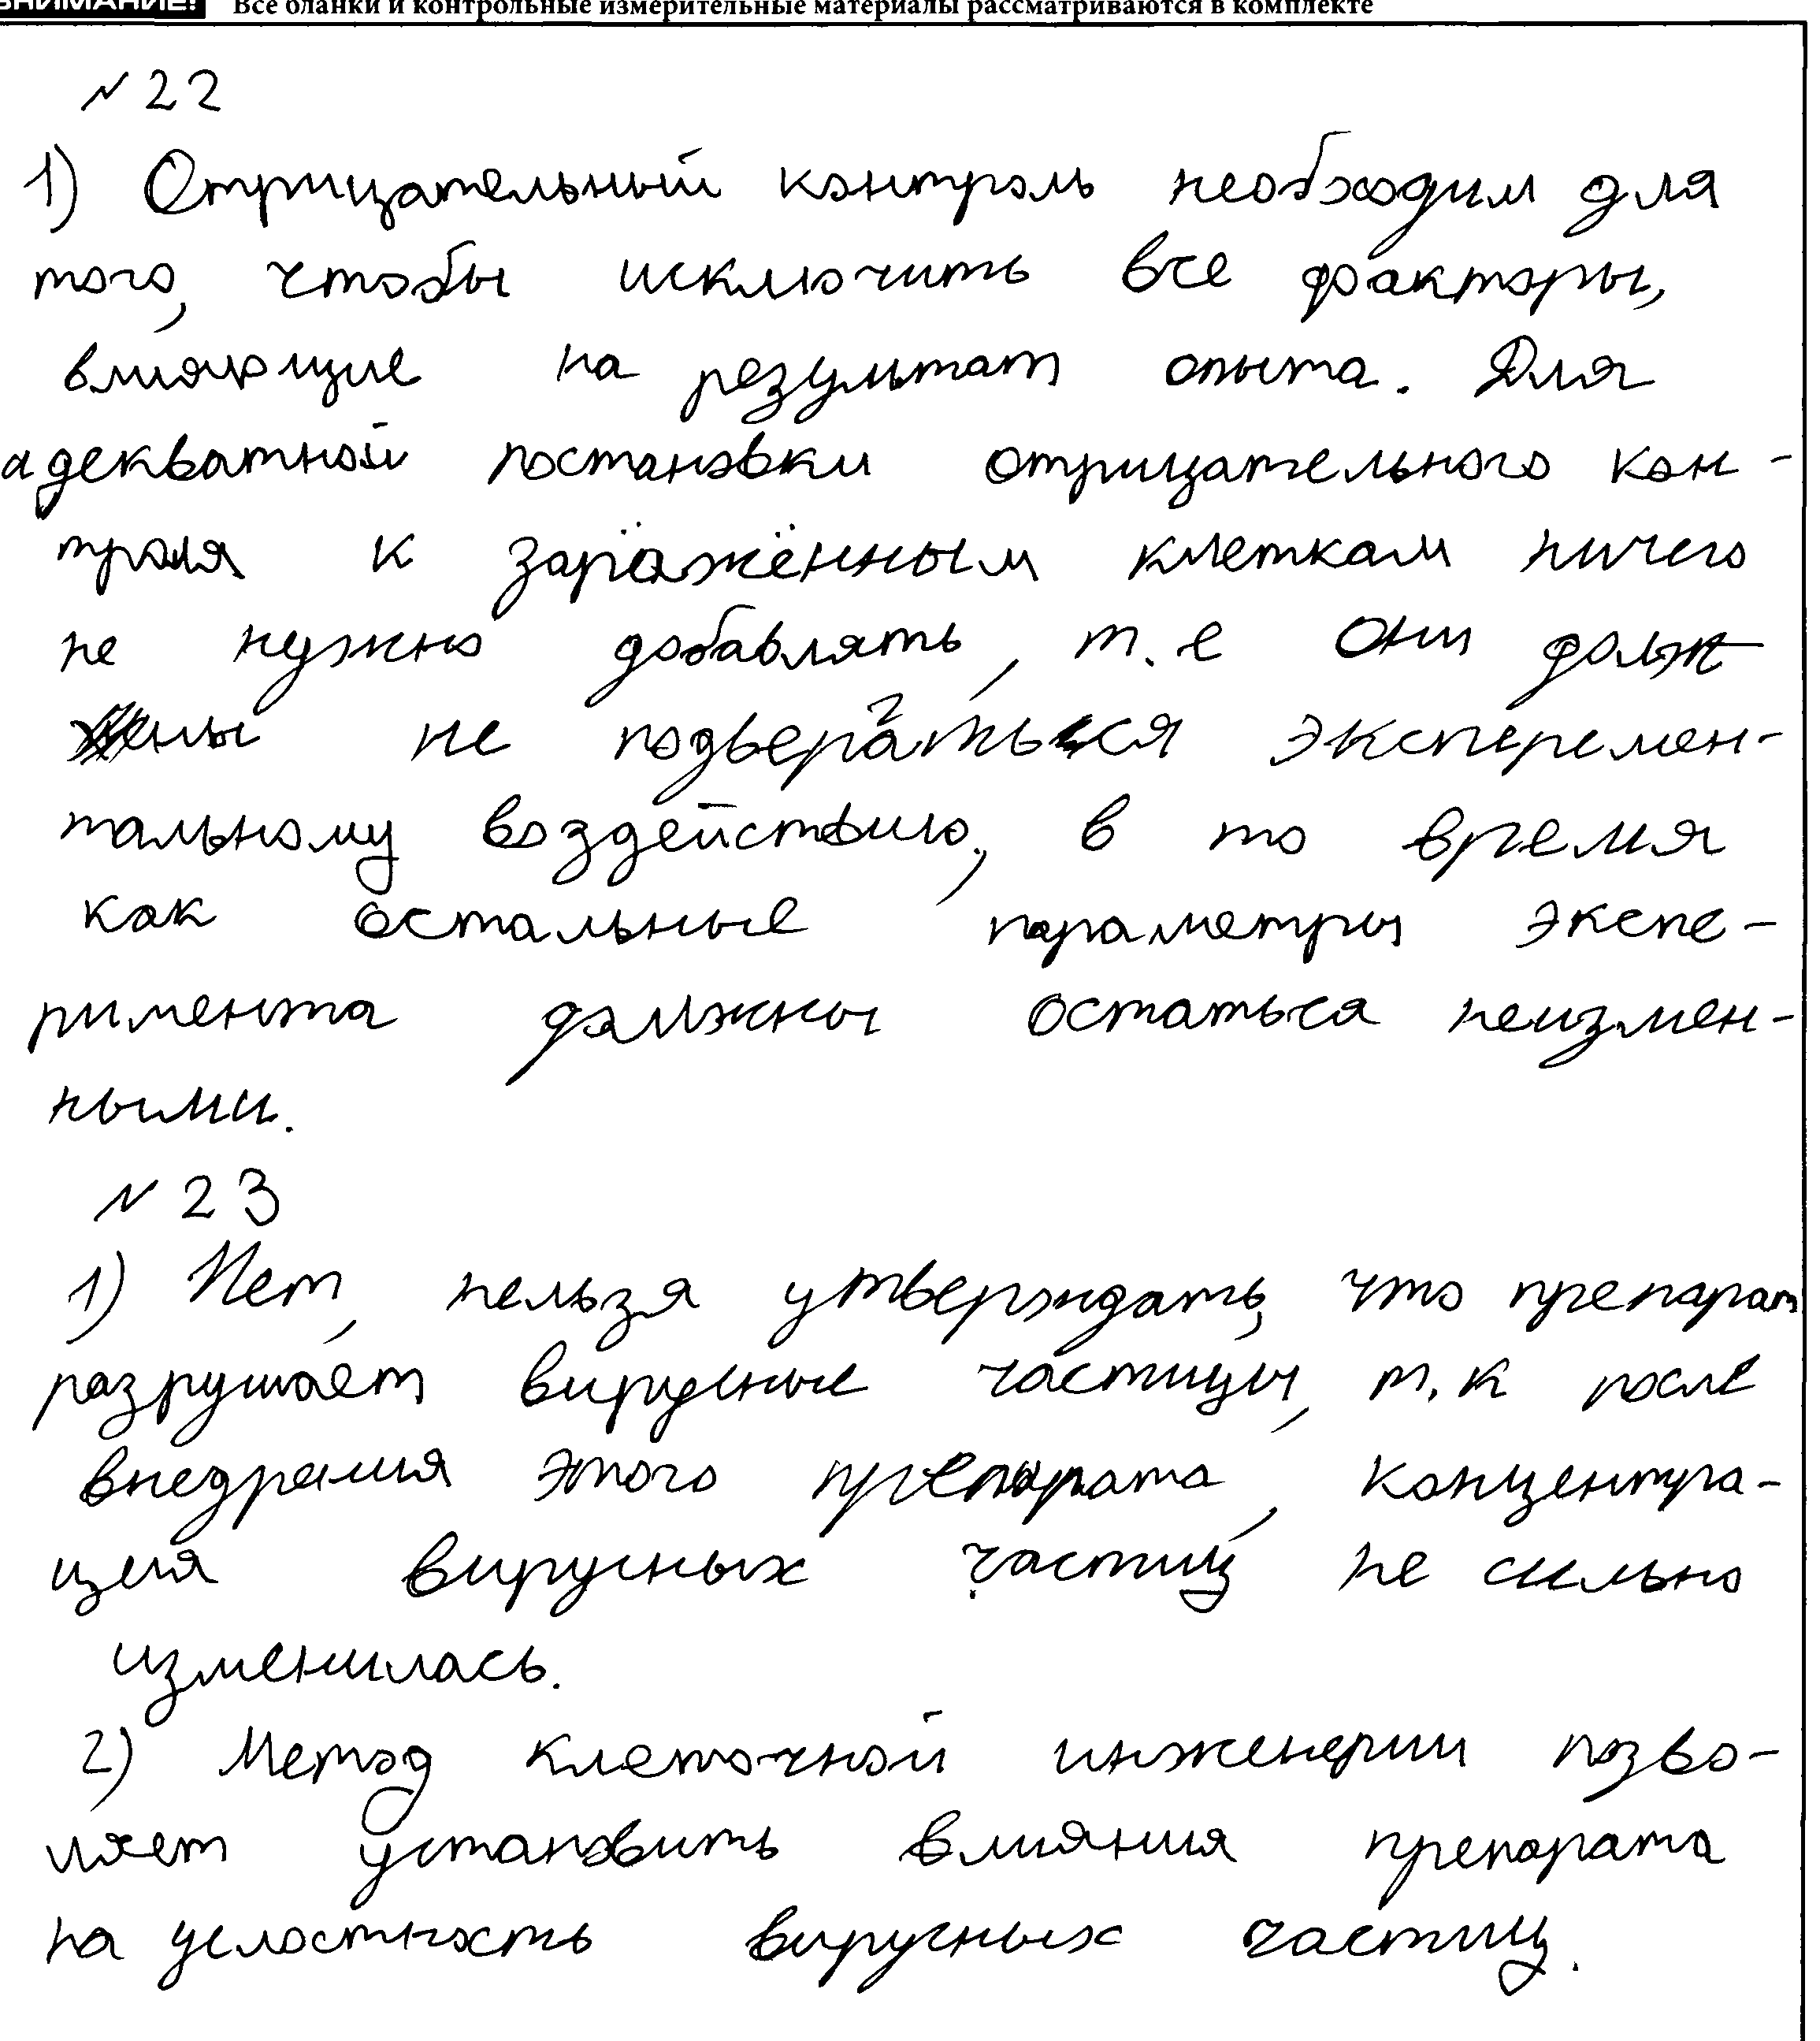 ВНИМАНИЕ! Все бланки и контрольные измерительные материалы рассматриваются в комплекте
№22
1) Отрицательный контроль необходим для
того, чтобы исключить все факторы,
влияющие на результат опыта. Для
адекватной постановки отрицательного кон-
троля к заражённым клеткам ничего
не нужно добавлять, т.е они долж
ны не подвергаться эксперемен-
тальному воздействию, в то время
как остальные параметры экспе-
римента должны остаться неизмен-
ными.
№23
1) Нет, нельзя утверждать, что препарат
разрушает вирусные частицы, т.к после
внедрения этого препарата, концентра-
ция вирусных частиц не сильно
изменилась.
2) Метод клеточной инженерии позво-
ляет установить влияния препарата
на целостность вирусных частиц.